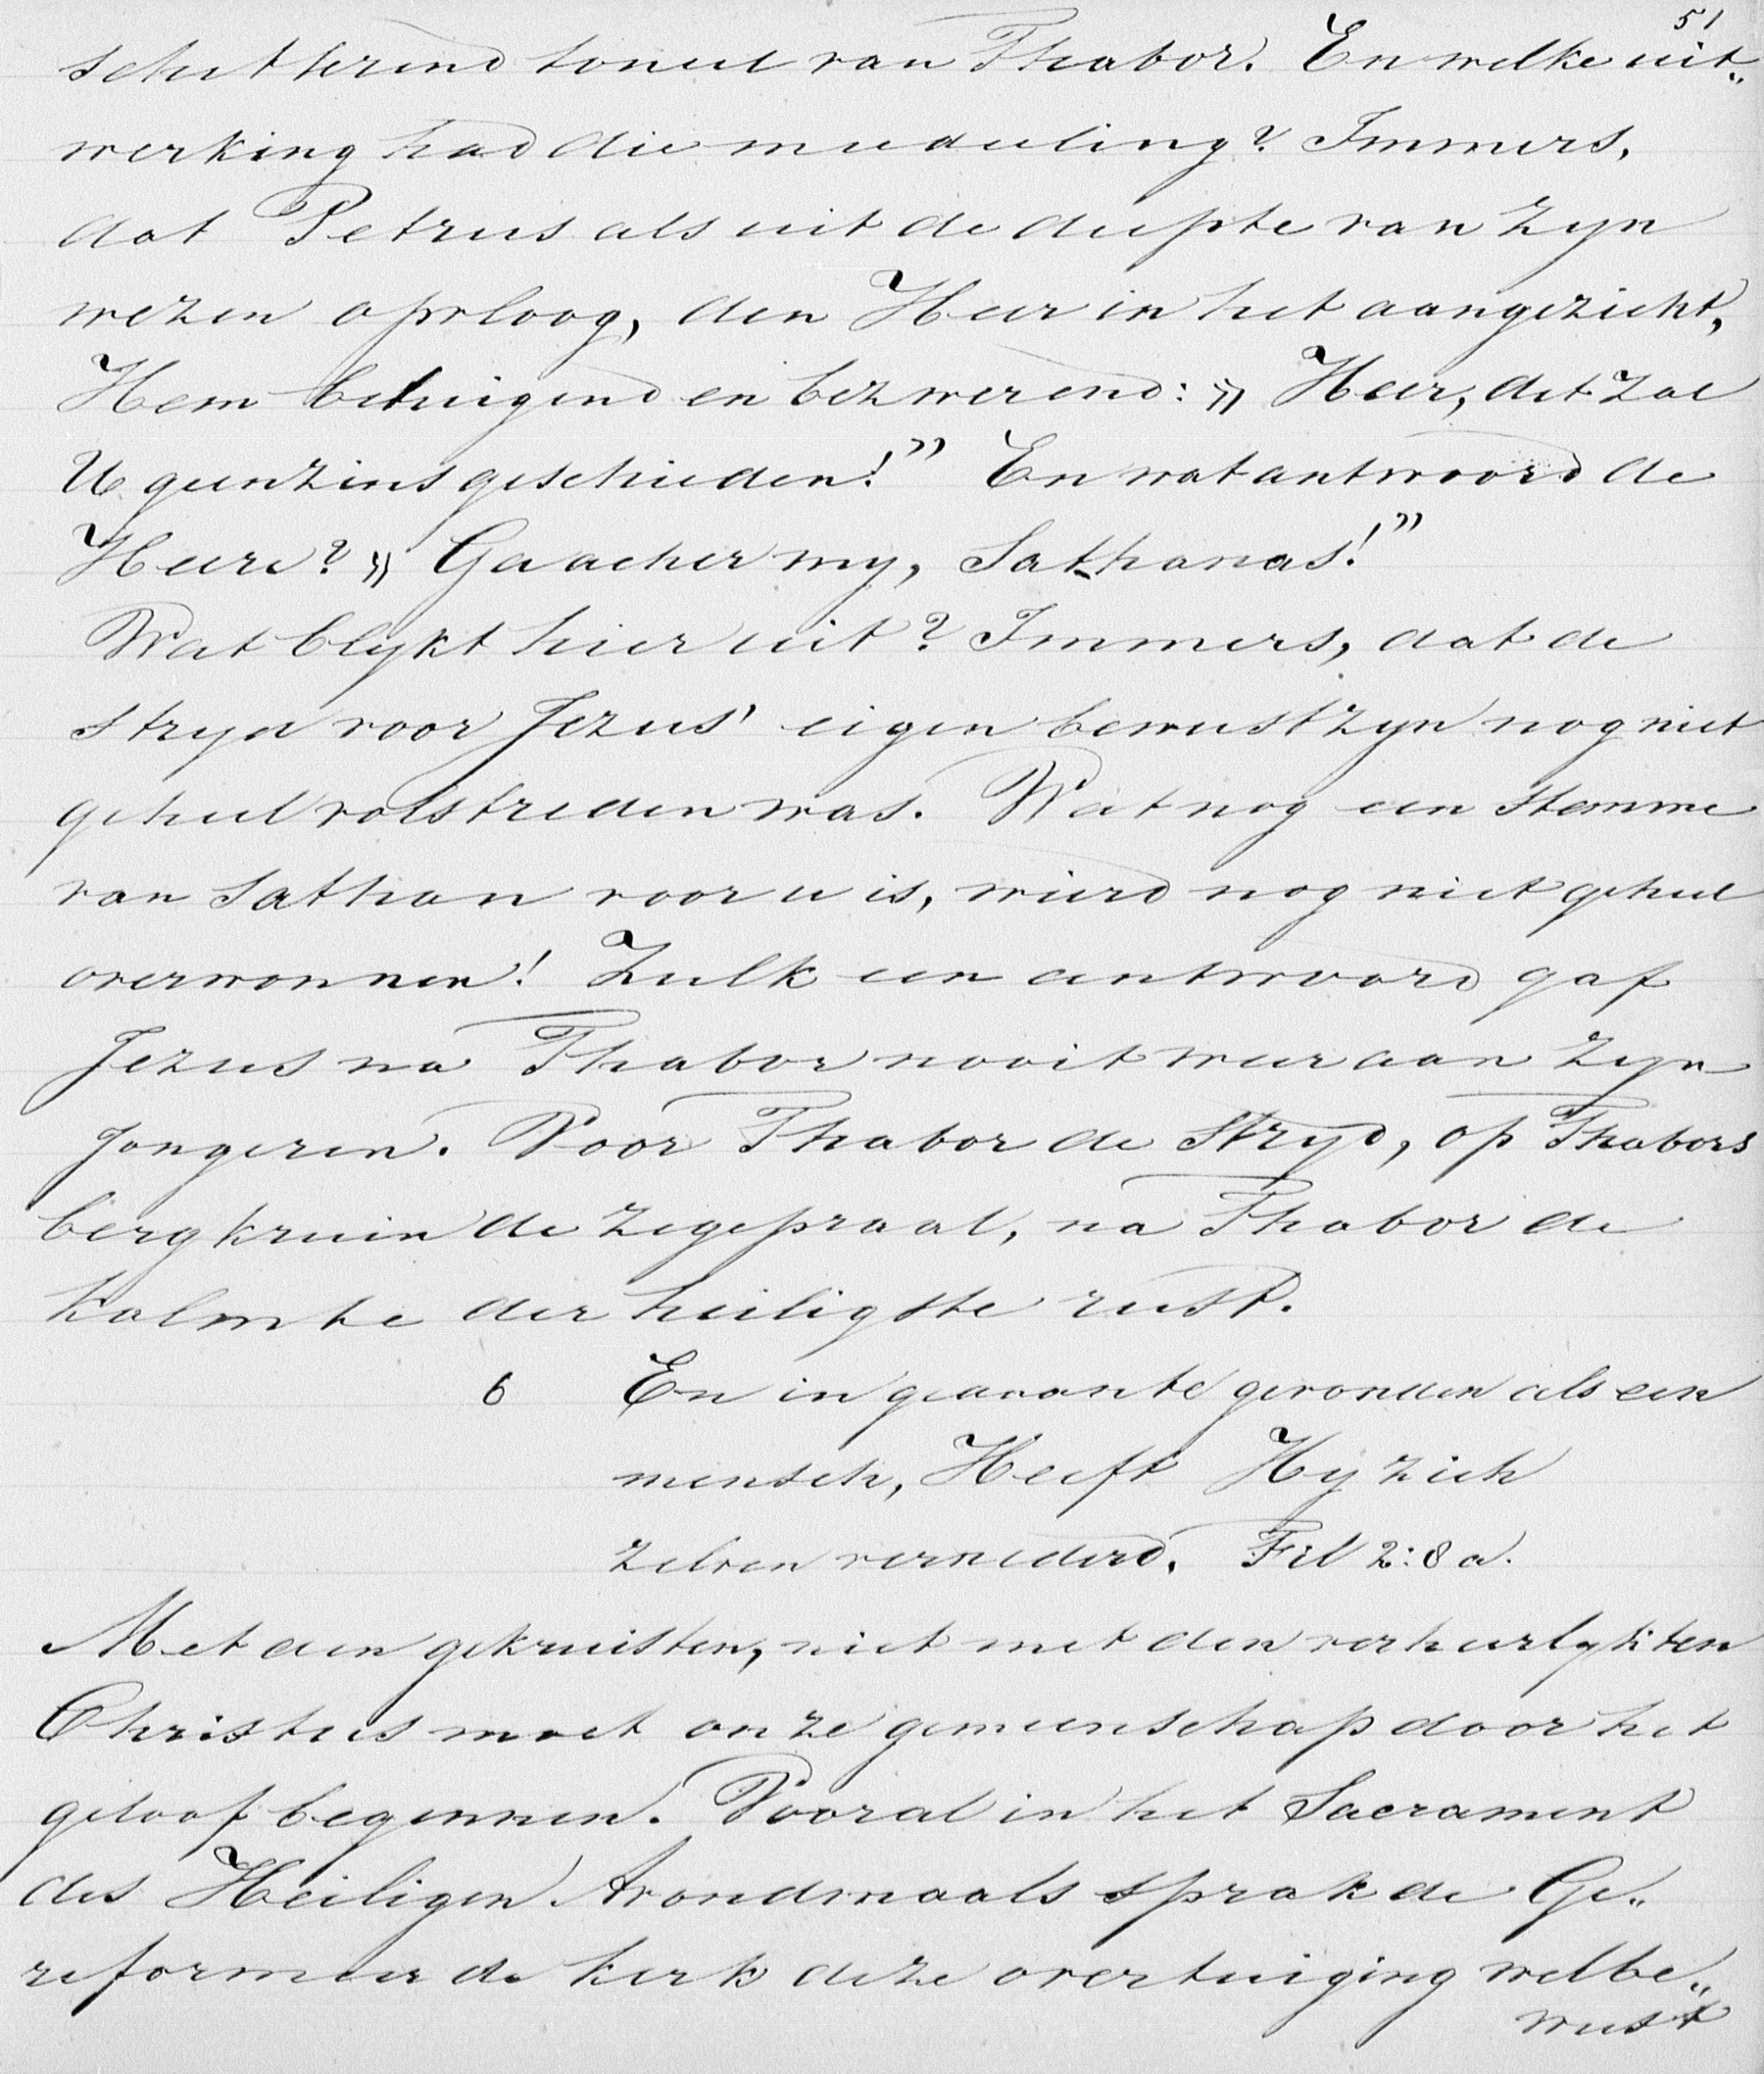 51
schitterend toneel van Thabor. En welke uit„
werking had die meedeeling? Immers,
dat Petrus als uit de diepte van zyn
wezen opvloog, den Heer in het aangezicht,
Hem betuigend en bezwerend: „ Heer, dit zal
U geenzins geschieden!” En wat antwoord de
Heere? „ Ga acher my, Sathanas!”
Wat blykt hier uit? Immers, dat de
stryd voor Jezus' eigen bewustzyn nog niet
geheel volstreden was. Wat nog een stemme
van Sathan voor u is, wierd nog niet geheel
overwonnen! Zulk een antwoord gaf
Jezus na Thabor nooit weer aan zyn
Jongeren. Voor Thabor de Stryd, op Thabors
bergkruin de zegepraal, na Thabor de
kalmte der heiligste rust.
6 En in gedaante gevonden als een
mensch, Heeft Hy zich
zelven vernederd. Fil 2:8a.
Met den gekruisten, niet met den verheerlykten
Christus moet onze gemeenschap door het
geloof beginnen. Vooral in het Sacrament
des Heiligen Avondmaals sprak de Ge„
reformeerde kerk deze overtuiging welbe„
wust